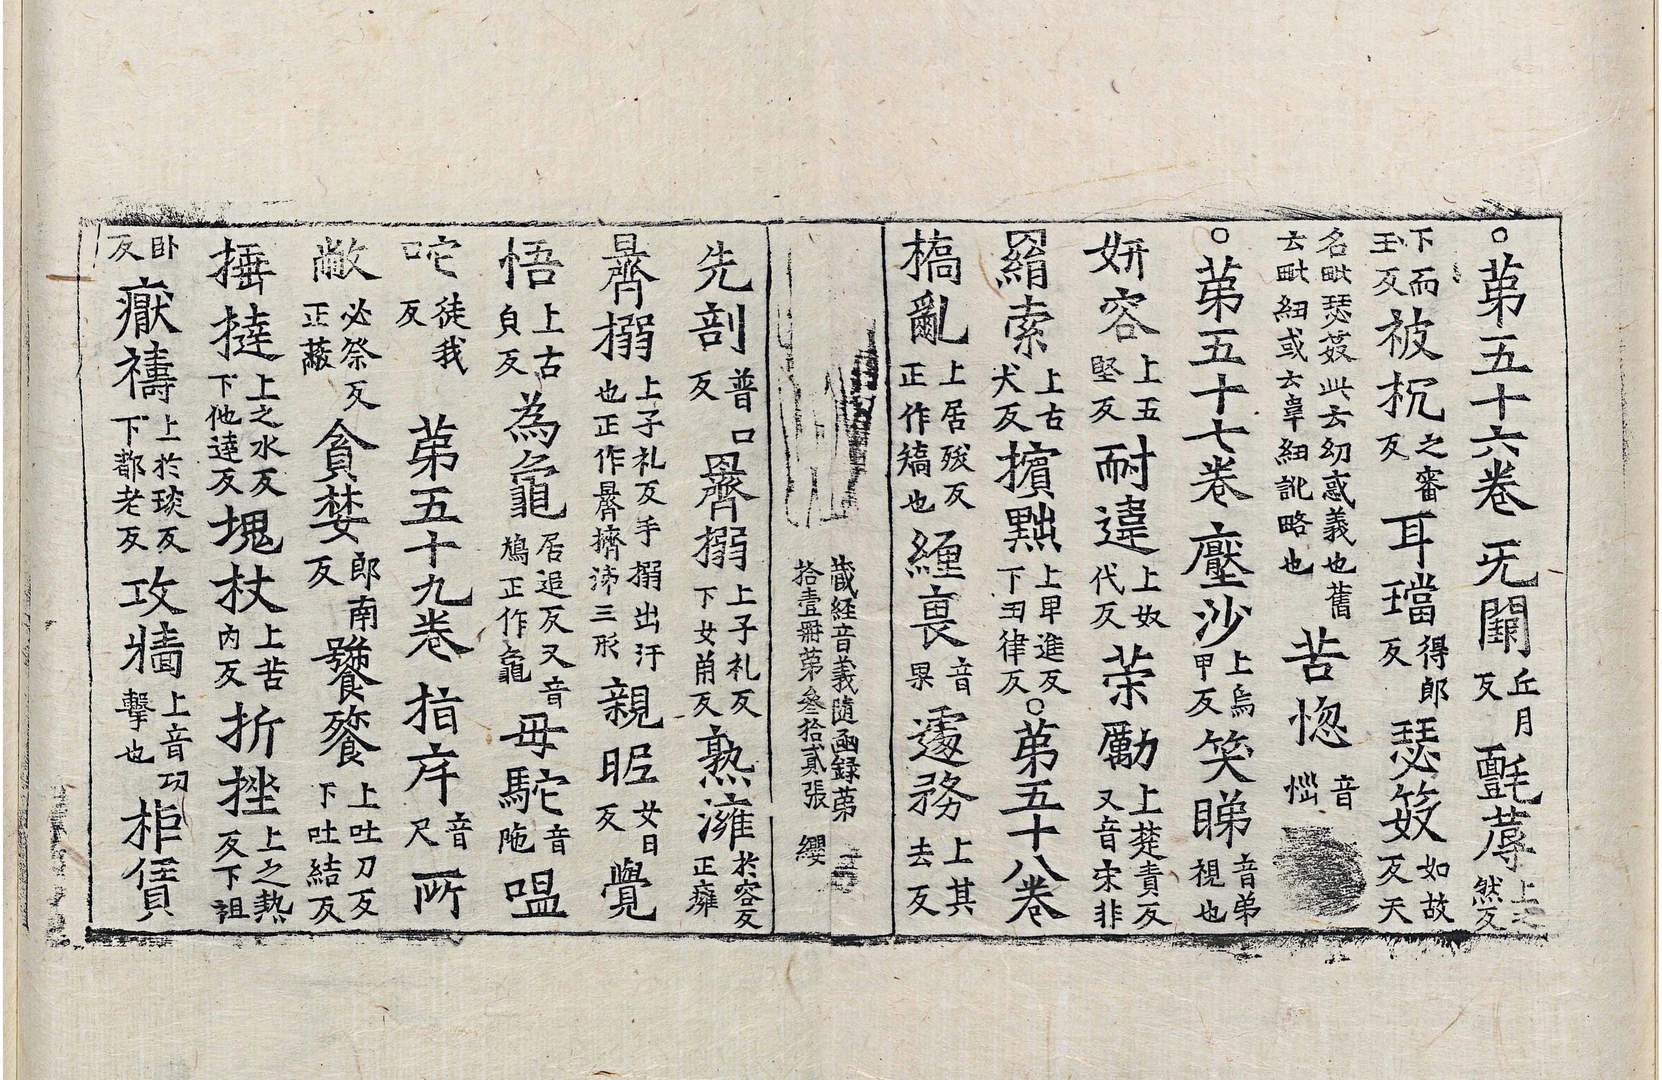 ○第五十六卷 旡𨵗丘月反㲲蓐上之然反
下而玉反被枕之審反耳璫得郎反瑟㚢如故反天
名毗瑟㚢此云幻惑義也舊云毗紐或云韋紐訛略也苦惚音惱
○第五十七卷 壓沙上烏甲反笑睇音弟視也
妍容上五堅反耐違上奴代反荣勵上楚責反又音宋非
羂索上古犬反擯黜上卑進反下丑律反○第五十八卷
槁亂上居殀反正作矯也纏裹音果遽務上其去反
藏経音義隨函録第拾壹冊第叄拾貳張 纓
先剖普口反㬪搦上子礼反下女角反熟癕於容反正癰
㬪搦上子礼反手搦出汗也正作㬪擠泲三形親昵女日反覺
悟上古皃反為龜居追反又音鳩正作龜毋駞音陁嗢
咜徒我反 第五十九卷 指庍音尺所
敝必祭反正蔽貪婪郎南反饕餮上吐刀反下吐結反
捶撻上之水反下他達反塊杖上苦內反折挫上之熱反下詛
卧反 猒禱上於琰反下都老反攻牆上音功擊也拒賃